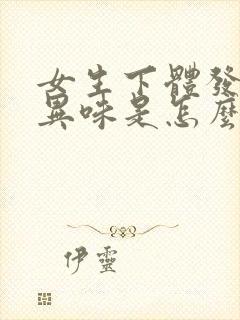 女生下體發
異味是怎麼
伊靈